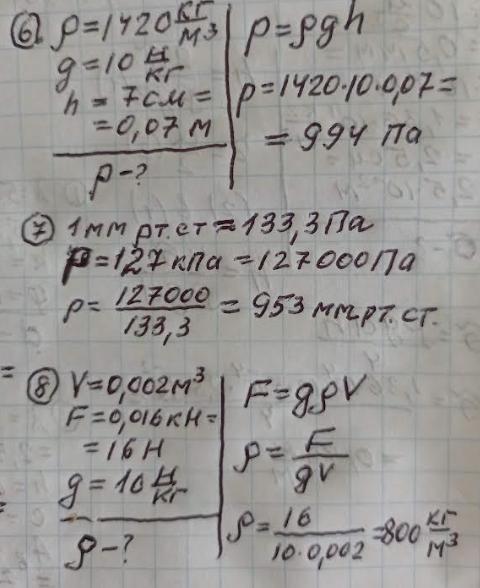 ⑥ ρ=1420 кг/м³
g=10 Н/кг
h = 7см =
= 0,07 м
p-?
p=ρgh
p=1420·10·0,07=
= 994 Па
⑦ 1мм рт.ст = 133,3Па
p=127кПа =127000Па
p= 127000/133,3 = 953 мм рт.ст.
⑧ V=0,002м³
F=0,016кН=
=16Н
g=10 Н/кг
ρ-?
F=gρV
ρ= F/gV
ρ= 16/10·0,002 =800 кг/м³